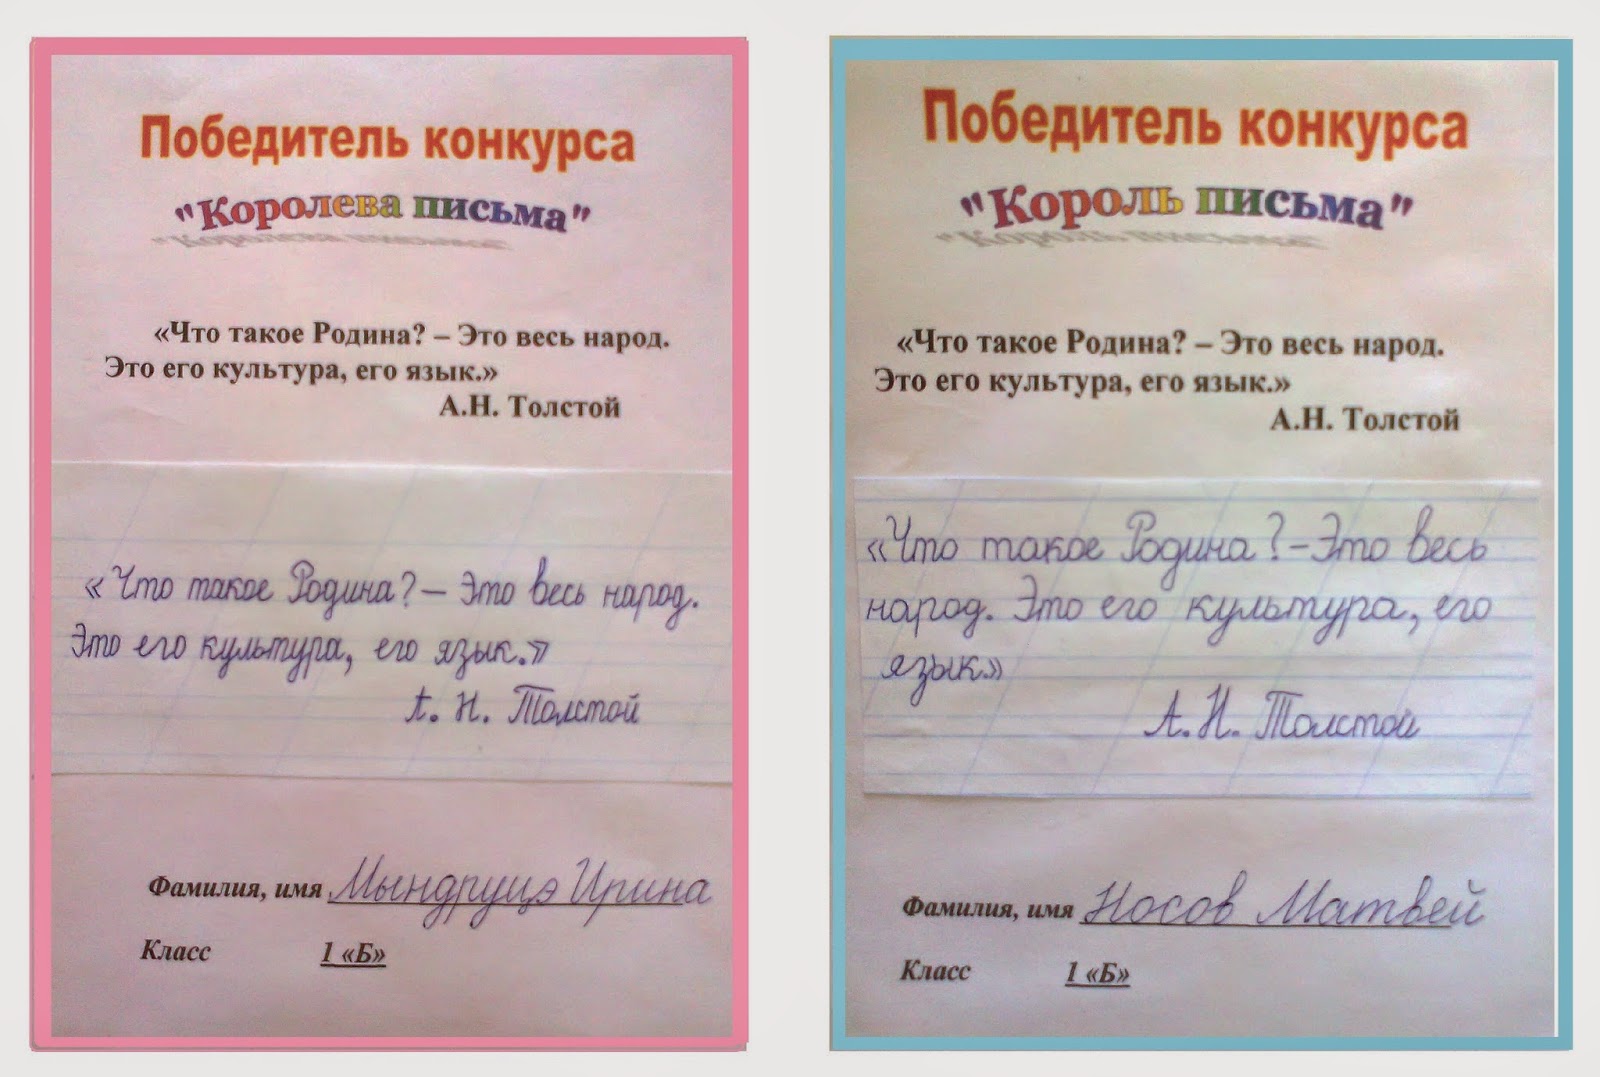 Победитель конкурса
"Королева письма"
«Что такое Родина? – Это весь народ.
Это его культура, его язык.»
А.Н. Толстой
«Что такое Родина? – Это весь народ.
Это его культура, его язык.»
А. Н. Толстой
Фамилия, имя Мындруцэ Ирина
Класс 1 «Б»
Победитель конкурса
"Король письма"
«Что такое Родина? – Это весь народ.
Это его культура, его язык.»
А.Н. Толстой
«Что такое Родина? – Это весь
народ. Это его культура, его
язык»
А. Н. Толстой
Фамилия, имя Носов Матвей
Класс 1 «Б»